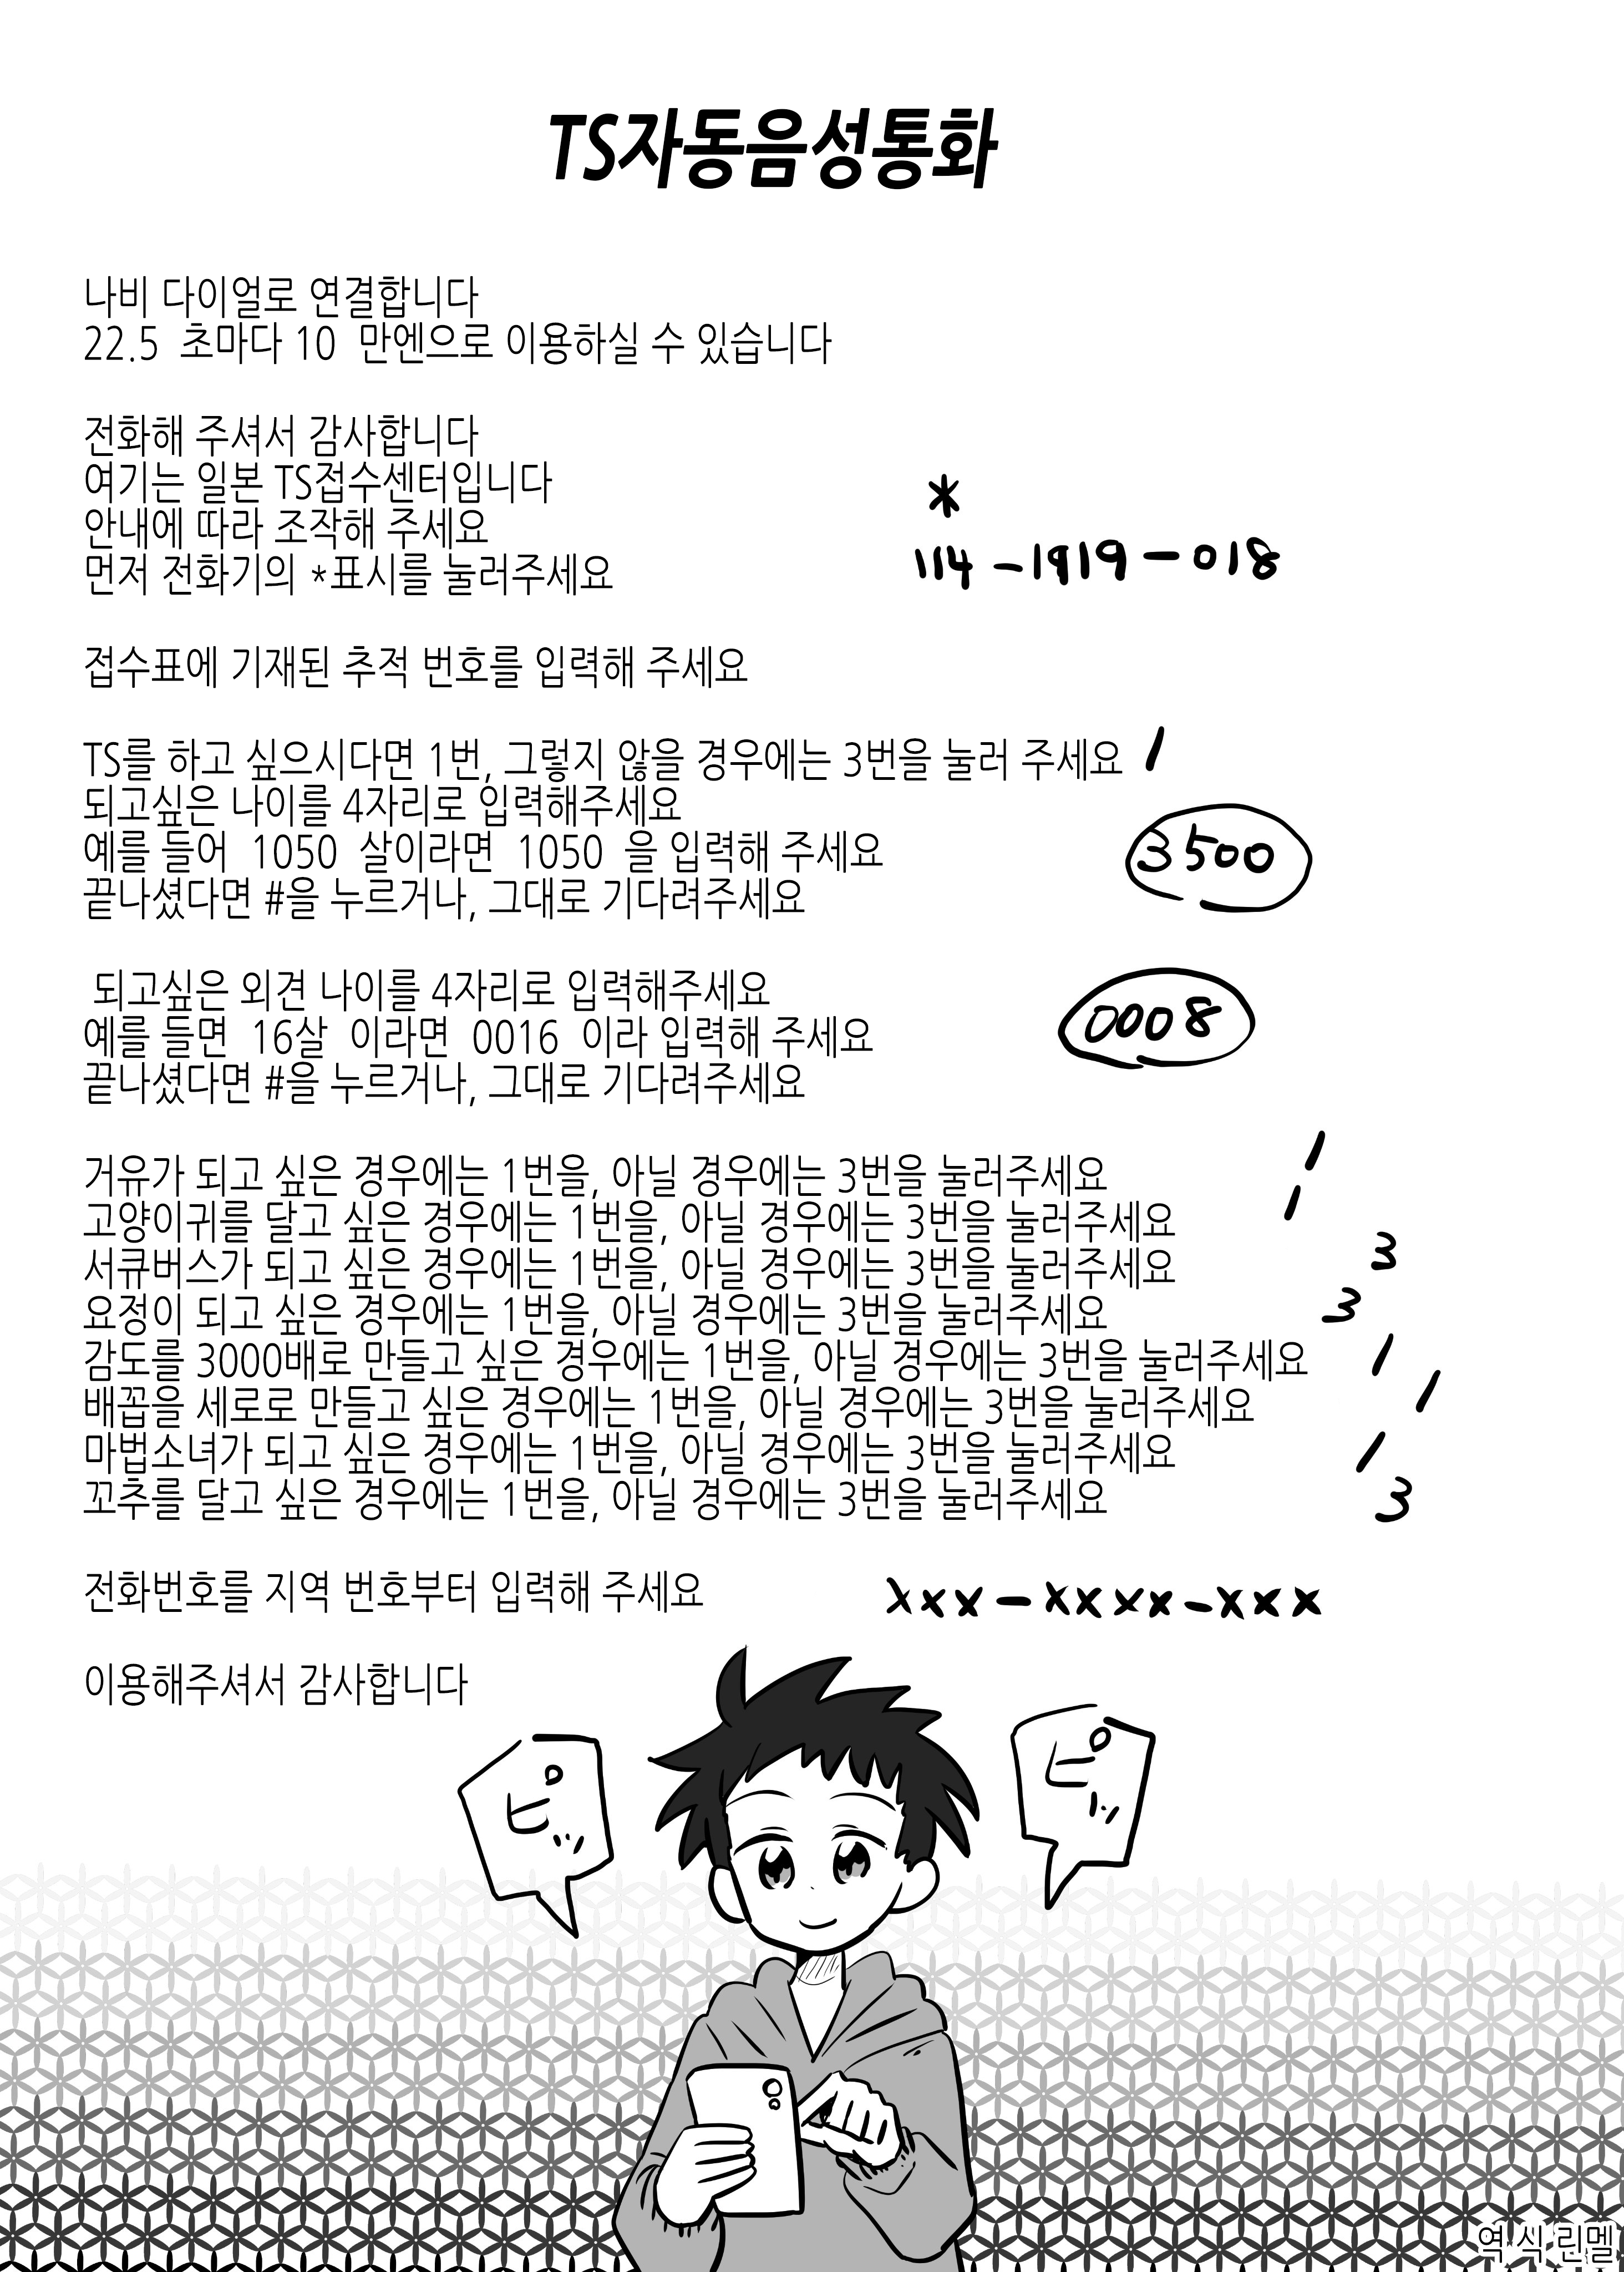 TS자동음성통화
나비 다이얼로 연결합니다
22.5 초마다 10 만엔으로 이용하실 수 있습니다
전화해 주셔서 감사합니다
여기는 일본 TS접수센터입니다
안내에 따라 조작해 주세요
먼저 전화기의 *표시를 눌러주세요
*
114-1919-018
접수표에 기재된 추적 번호를 입력해 주세요
TS를 하고 싶으시다면 1번, 그렇지 않을 경우에는 3번을 눌러 주세요 1
되고싶은 나이를 4자리로 입력해주세요
예를 들어 1050 살이라면 1050 을 입력해 주세요 3500
끝나셨다면 #을 누르거나, 그대로 기다려주세요
되고싶은 외견 나이를 4자리로 입력해주세요
예를 들면 16살 이라면 0016 이라 입력해 주세요 0008
끝나셨다면 #을 누르거나, 그대로 기다려주세요
거유가 되고 싶은 경우에는 1번을, 아닐 경우에는 3번을 눌러주세요 1
고양이귀를 달고 싶은 경우에는 1번을, 아닐 경우에는 3번을 눌러주세요 1
서큐버스가 되고 싶은 경우에는 1번을, 아닐 경우에는 3번을 눌러주세요 3
요정이 되고 싶은 경우에는 1번을, 아닐 경우에는 3번을 눌러주세요 3
감도를 3000배로 만들고 싶은 경우에는 1번을, 아닐 경우에는 3번을 눌러주세요 1
배꼽을 세로로 만들고 싶은 경우에는 1번을, 아닐 경우에는 3번을 눌러주세요 1
마법소녀가 되고 싶은 경우에는 1번을, 아닐 경우에는 3번을 눌러주세요 1
꼬추를 달고 싶은 경우에는 1번을, 아닐 경우에는 3번을 눌러주세요 3
전화번호를 지역 번호부터 입력해 주세요 xxx-xxxx-xxx
이용해주셔서 감사합니다
ピッ
ピッ
역 식 린멜